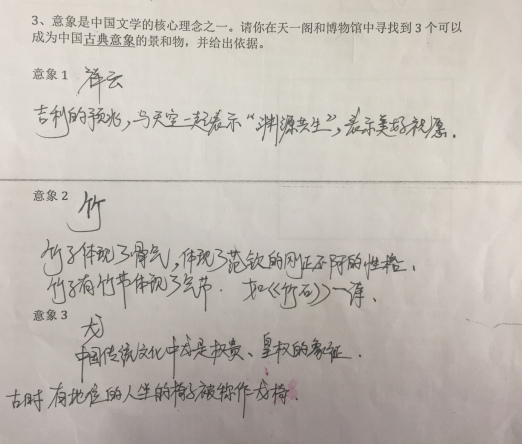 3、意象是中国文学的核心理念之一。请你在天一阁和博物馆中寻找到 3 个可以
成为中国古典意象的景和物，并给出依据。
意象 1 祥云
吉利的预兆，与天空一起表示“渊源共生”，表示美好祝愿．
意象 2 竹
竹子体现了骨气，体现了范钦的刚正不阿的性格．
竹子有竹节体现了气节．如《竹石》一诗．
意象 3
龙
中国传统文化中龙是权贵、皇权的象征．
古时有地位的人坐的椅子被称作龙椅